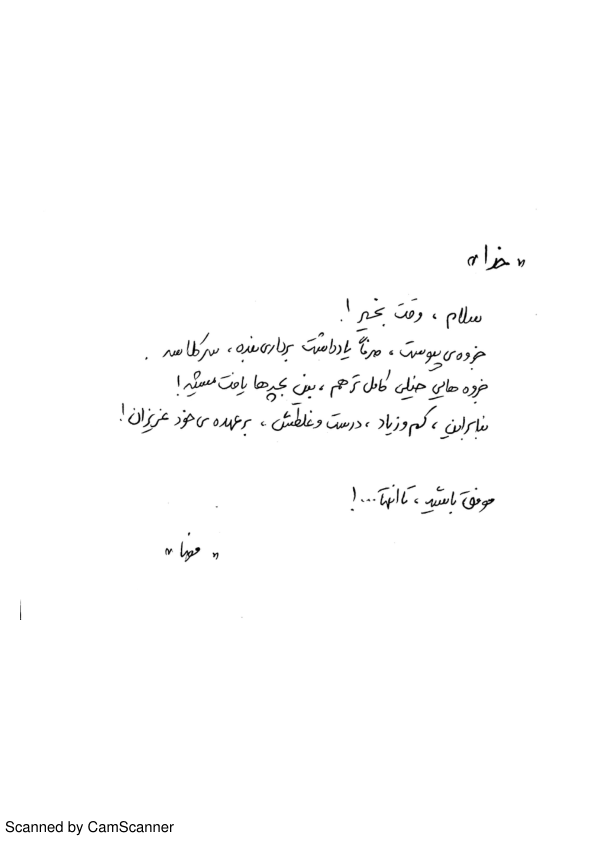 « خدا »
سلام ، وقت بخیر !
جزوه ی پیوست ، صرفاً یادداشت برداری بنده ، سر کلاسه .
جزوه هایی خیلی کامل تر هم ، بین بچه ها یافت میشه !
بنابراین ، کم و زیاد ، درست و غلطش ، بر عهده ی خود عزیزان !
موفق باشید ، تا انتها ... !
Scanned by CamScanner